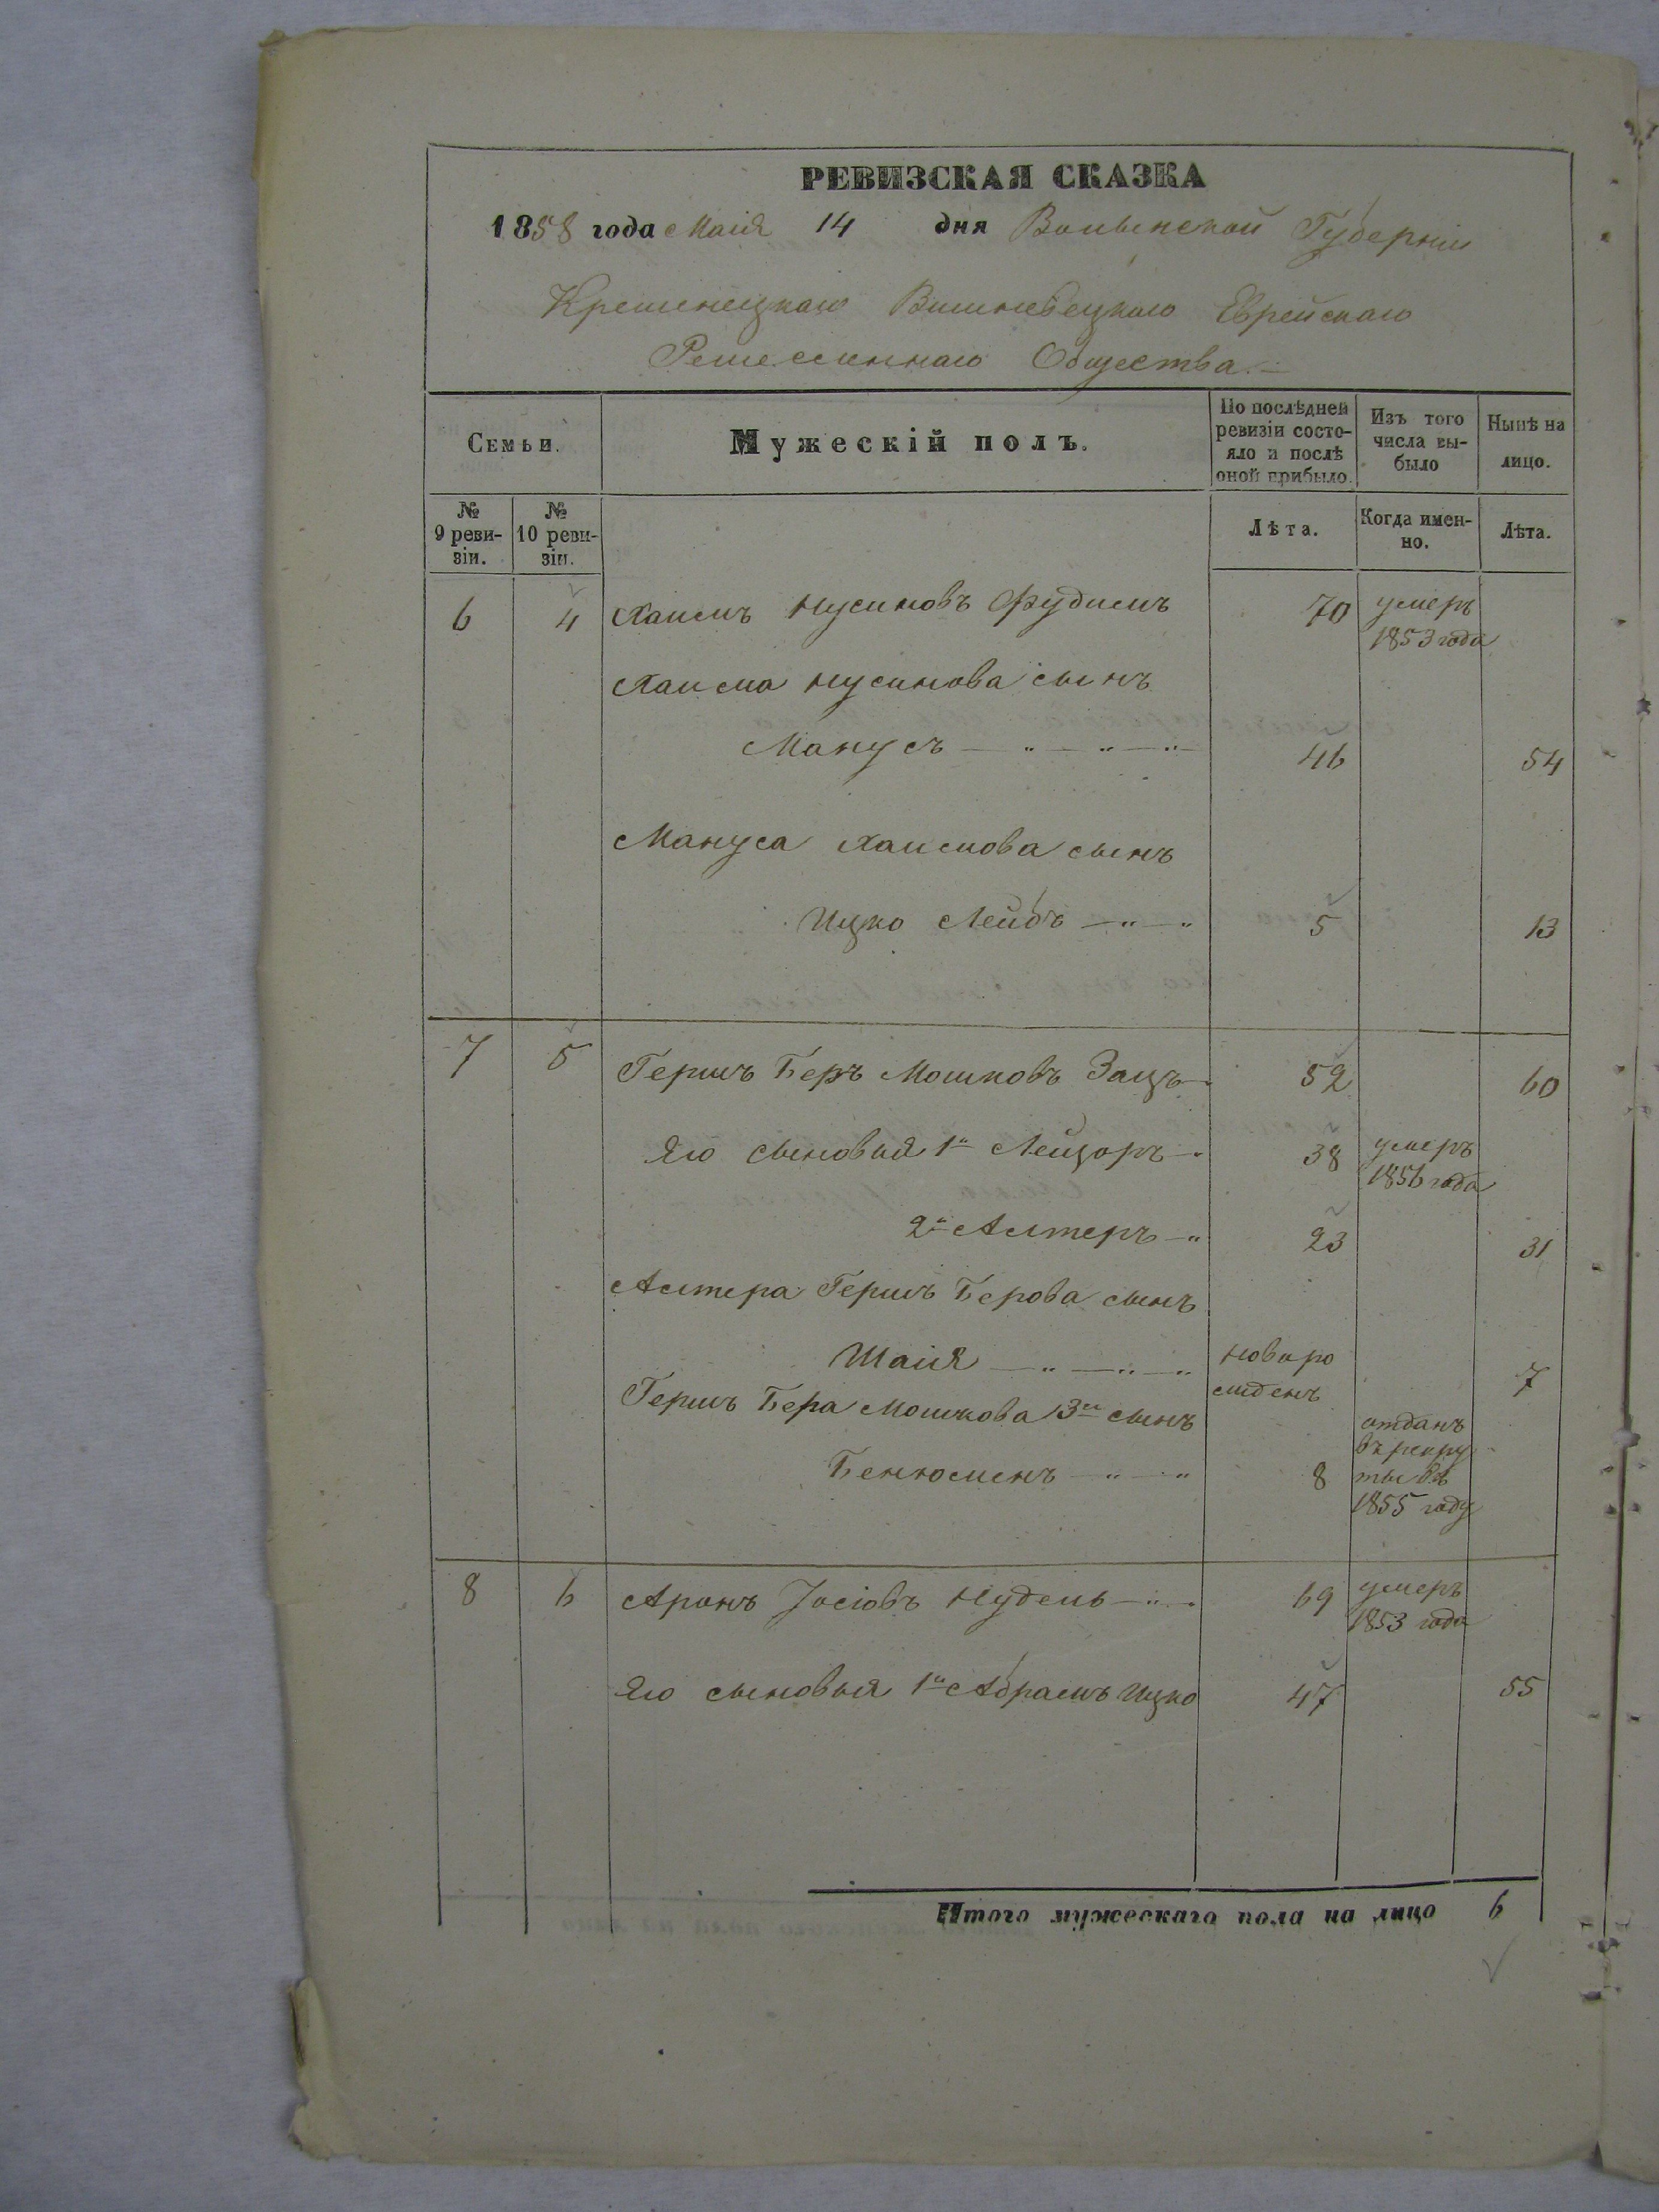 РЕВИЗСКАЯ СКАЗКА
1858 года Маія 14 дня Волынской Губерніи
Кременецкаго Вишневецкаго Еврейскаго
Ремесленнаго Общества.
Семьи.
Мужескій полъ.
По послѣдней ревизіи состо-
яло и послѣ
оной прибыло.
Изъ того
числа вы-
было
Нынѣ на
лицо.
№ 9 реви-
зіи.
№ 10 реви-
зіи.
Лѣта.
Когда имен-
но.
Лѣта.
6 4 Хаимъ Нусиновъ Фудимъ 70 умеръ
1853 года
Хаима Нусинова сынъ
Манусъ 46 54
Мануса Хаимова сынъ
Ицко Лейбъ 5 13
7 5 Гершъ Беръ Мошковъ Зацъ 52 60
Его сыновья 1й Лейзоръ 38 умеръ
1856 года
2й Алтеръ 23 31
Алтера Гершъ Берова сынъ
Шаія ново ро
жденъ 7
Гершъ Бера Мошкова 3й сынъ
Бенюменъ 8 отданъ
въ рекру
ты въ
1855 году
8 6 Аронъ Іосіовъ Нудель 69 умеръ
1853 года
Его сыновья 1й Абрамъ Ицко 47 55
Итого мужескаго пола на лицо 6